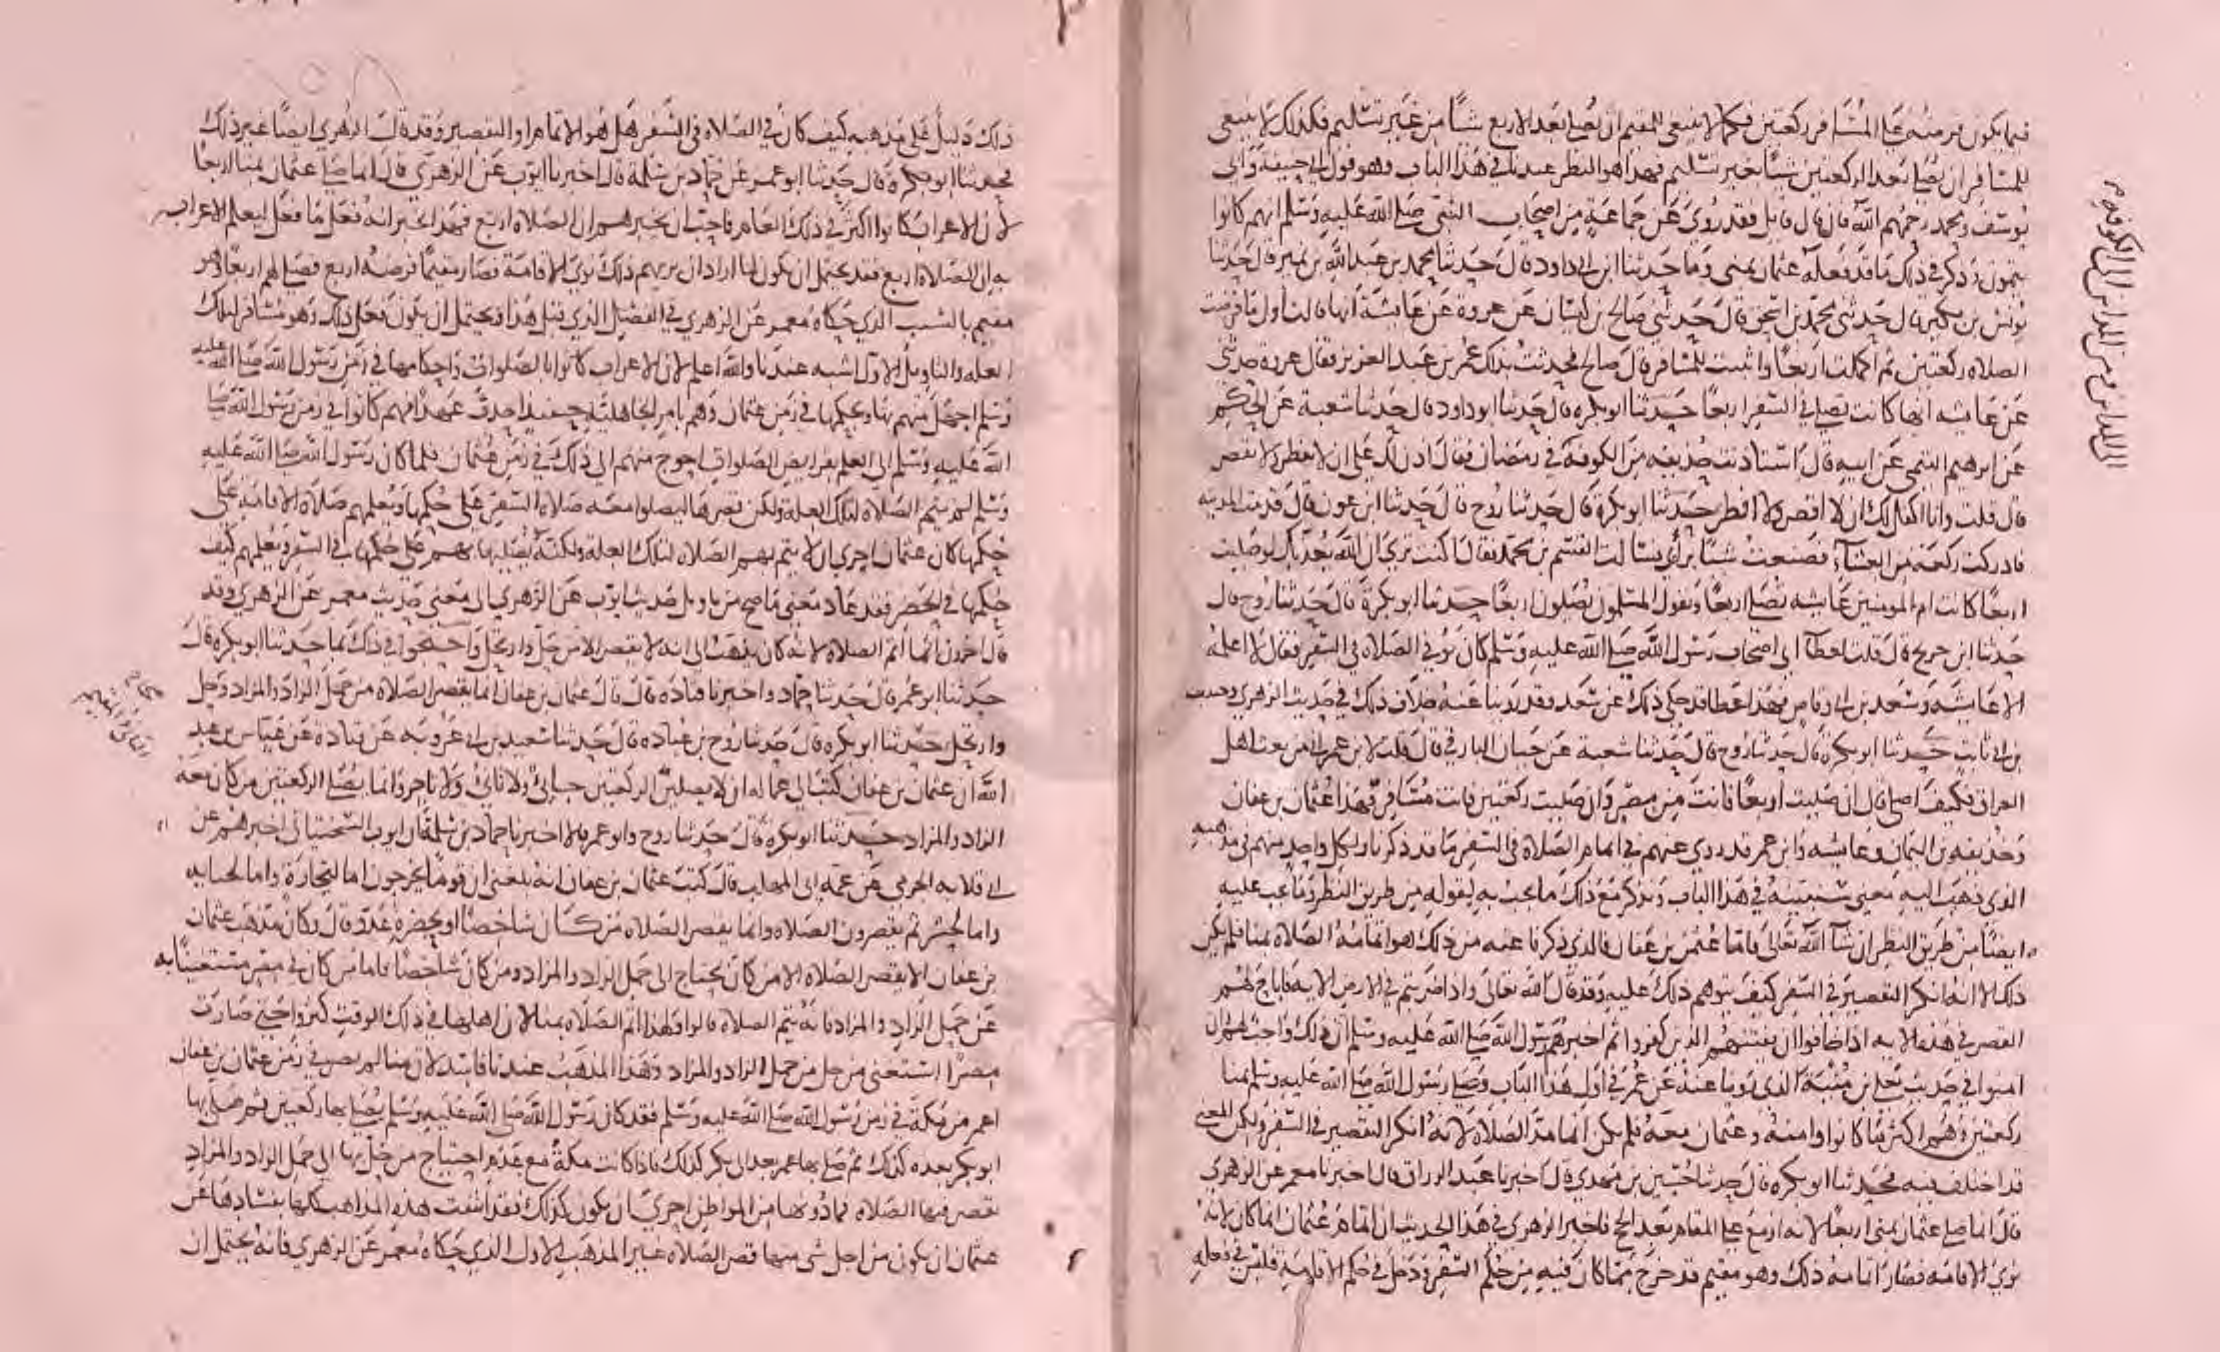 فيما يكون فرضه على المسافر ركعتين فكما لا ينبغي للمقيم ان يصلي بعد الاربع شيأ من غير تسليم فكذلك لا ينبغي
للمسافر ان يصلي بعد الركعتين شيأ بغير تسليم فهذا هو النظر عندنا في هذا الباب وهو قول ابي حنيفة وابي
يوسف ومحمد رحمهم الله فان قال قايل فقد روي عن جماعة من اصحاب النبي صلى الله عليه وسلم انهم كانوا
يتمون وذكر في ذلك ما قد فعله عثمان بمنى وما حدثنا ابن ابي داود قال حدثنا محمد بن عبد الله بن نمير قال حدثنا
يونس بن بكير قال حدثني محمد بن اسحق قال حدثني صالح بن كيسان عن عروة عن عايشة انها قالت اول ما فرضت
الصلاه ركعتين ثم اكملت اربعا واثبتت للمسافر قال صالح فحدثت بذلك عمر بن عبد العزيز فقال عروة حدثني
عن عايشه انها كانت تصلي في السفر اربعا حدثنا ابو بكره قال حدثنا ابو داود قال حدثنا شعبة عن الحكم
عن ابرهيم التيمي عن ابيه قال استاذنت حذيفه من الكوفة في رمضان فقال اذن لك على ان لا تفطر ولا تقصر
قال قلت وانا اكفل لك ان لا اقصر ولا افطر حدثنا ابو بكرة قال حدثنا روح قال حدثنا ابن عون قال قدمت المدينه
فادركت ركعة من العشاء فصنعت شيئا برأي فسالت القسم بن محمد فقال اكنت ترى ان الله يعذبك لو صليت
اربعا كانت ام المومنين عايشه تصلي اربعا وتقول المسلمون يصلون اربعا حدثنا ابو بكرة قال حدثنا روح قال
حدثنا ابن جريج قال قلت لعطا اي اصحاب رسول الله صلى الله عليه وسلم كان يوفي الصلاه في السفر فقال لا اعلمه
الا عايشه وسعد بن ابي وقاص فهذا عطا قد حكى ذلك عن سعد وقد روينا عنه خلاف ذلك في حديث الزهري وحبيب
بن ابي ثابت حدثنا ابو بكره قال حدثنا روح قال حدثنا شعبة عن حيان البارقي قال قلت لابن عمر اني من بعث اهل
العراق فكيف اصلي قال ان صليت اربعا فانت في مصر وان صليت ركعتين فانت مسافر فهذا عثمان بن عفان
وحذيفه بن اليمان وعايشه وابن عمر قد روي عنهم في اتمام الصلاة في السفر ما قد ذكرنا ولكل واحد منهم في مذهبه
الذي ذهب اليه معنى سنبينه في هذا الباب ونذكر مع ذلك ما يجب به لقوله من طريق النظر وما يجب عليه
ايضا من طريق النظر ان شا الله تعالى فاما عثمن بن عفان فالذي ذكرنا عنه من ذلك هو اتمامه الصلاه بمنا فلم يكن
ذلك لانه انكر التقصير في السفر كيف يتوهم ذلك عليه وقد قال الله تعالى واذا ضربتم في الارض الايه فاباح لهم
القصر في هذه الايه اذا خافوا ان يفتنهم الذين كفروا ثم اخبرهم رسول الله صلى الله عليه وسلم ان ذلك واجب لهم وان
امنوا في حديث يعلى بن منية الذي روينا عنه عن عمر في اول هذا الباب وصلى رسول الله صلى الله عليه وسلم بمنا
ركعتين وهم اكثر ما كانوا وامنه وعثمان معه فلم يكن اتمامه الصلاة لانه انكر التقصير في السفر ولكن لمعنى
قد اختلف فيه فحدثنا ابو بكره قال حدثنا حسين بن مهدي قال اخبرنا عبد الرزاق قال اخبرنا معمر عن الزهري
قال انما صلى عثمان بمنى اربعا لانه ازمع على المقام بعد الحج فاخبر الزهري في هذا الحديث ان اتمام عثمان انما كان لانه
نوى الاقامه فصار اتمامه ذلك وهو مقيم قد خرج مما كان فيه من حكم السفر ودخل في حكم الاقامة فليس في فعله
ذلك دليل على مذهبه كيف كان في الصلاه في السفر هل هو الاتمام او التقصير وقد قال الزهري ايضا غير ذلك
فحدثنا ابو بكرة قال حدثنا ابو عمر عن حماد بن سلمة قال اخبرنا ايوب عن الزهري قال انما صلى عثمان بمنا اربعا
لان الاعراب كانوا اكثر في ذلك العام فاحب ان يخبرهم ان الصلاة اربع فهذا يخبر انه فعل ما فعل ليعلم الاعراب
به ان الصلاة اربع فقد يحتمل ان يكون لما اراد ان يريهم ذلك نوى الاقامة فصار مقيما فرضه اربع فصلى لهم اربعا وهو
مقيم بالسبب الذي حكاه معمر عن الزهري في الفصل الذي قبل هذا ويحتمل ان يكون فعل ذلك وهو مسافر لتلك
العله والتاويل الاول اشبه عندنا والله اعلم لان الاعراب كانوا بالصلوات واحكامها في زمن رسول الله صلى الله عليه
وسلم اجهل منهم بها وبحكمها في زمن عثمان وهم بامر الجاهلية حينئذ احدث عهدا فهم كانوا في زمن رسول الله صلى
الله عليه وسلم الى العلم بفرايض الصلوات احوج منهم الى ذلك في زمن عثمان فلما كان رسول الله صلى الله عليه
وسلم لم يتم الصلاة لتلك العلة ولكن قصرها ليصلوا معه صلاة السفر على حكمها ويعلمهم صلاة الاقامة على
حكمها كان عثمان احرى ان لا يتم بهم الصلاه لتلك العلة ولكنه يصليها بهم على حكمها في السفر ويعلمهم كيف
حكمها في الحضر فقد عاد معنى ما صح من تاويل حديث ايوب عن الزهري الى معنى حديث معمر عن الزهري وقد
قال اخرون انما اتم الصلاه لانه كان يذهب الى انه لا يقصر الا من حل وارتحل واحتجوا في ذلك بما حدثنا ابو بكره قال
حدثنا ابو عمر قال حدثنا حماد واخبرنا قتاده قال قال عثمان بن عفان انما يقصر الصلاه من حمل الزاد والمزاد وحل
وارتحل حدثنا ابو بكره قال حدثنا روح بن عباده قال حدثنا سعيد بن ابي عروبه عن قتادة عن عياش بن عبد
الله ان عثمان بن عفان كتب الى عماله ان لا يصلين الركعتين جابي ولا ناني ولا تاجر وانما يصلي الركعتين من كان معه
الزاد والمزاد حدثنا ابو بكره قال حدثنا روح وابو عمر قالا اخبرنا حماد بن سلمة ان ايوب السختياني اخبرهم عن
ابي قلابه الجرمي عن عمه ابي المهلب قال كتب عثمان بن عفان انه بلغني ان قوما يخرجون اما لتجارة واما لجبايه
واما لجشر ثم يقصرون الصلاه وانما يقصر الصلاه من كان شاخصا او بحضره عدو قال وكان مذهب عثمان
بن عفان الا يقصر الصلاه الا من كان يحتاج الى حمل الزاد والمزاد ومن كان شاخصا فاما من كان في مصر مستغنيا به
عن حمل الزاد والمزاد فانه يتم الصلاه قالوا فلهذا اتم الصلاه بمنا لان اهلها في ذلك الوقت كثروا حتى صارت
مصرا استغنى من حل من حمل الزاد والمزاد وهذا المذهب عندنا فاسد لان منا لم تصر في زمن عثمان بن عفان
اعمر من مكة في زمن رسول الله صلى الله عليه وسلم فقد كان رسول الله صلى الله عليه وسلم يصلي بها ركعتين ثم صلى بها
ابو بكر بعده كذلك ثم صلى بها عمر بعد ابي بكر كذلك فاذا كانت مكة مع عدم احتياج من حل بها الى حمل الزاد والمزاد
تقصر فيها الصلاه فما دونها من المواطن احرى ان يكون كذلك فقد انتفت هذه المذاهب كلها بفسادها عن
عثمان ان يكون من اجل شى منها قصر الصلاه غير المذهب الاول الذي حكاه معمر عن الزهري فانه يحتمل ان